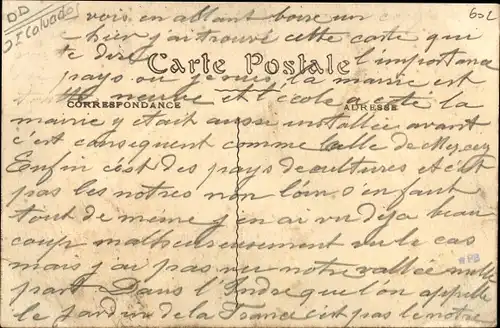 DD
Dt Calvados
602
vois en allant boire un
hier j'ai trouvé cette carte qui
te dire l'importance
Carte Postale
pays ou je suis la mairie est
CORRESPONDANCE
ADRESSE
neuve et l'école a coté la
mairie y était aussi installée avant
c'est consequent comme celle de
Enfin c'est des pays de cultures et c'est
pas les notres non loin s'en faut
tout de meme j'en ai vu deja beau
coup malheureusement vu le cas
mais j'ai pas vu notre vallée nulle
part Dans l'Indre que l'on appelle
le jardin de la France c'est pas le notre